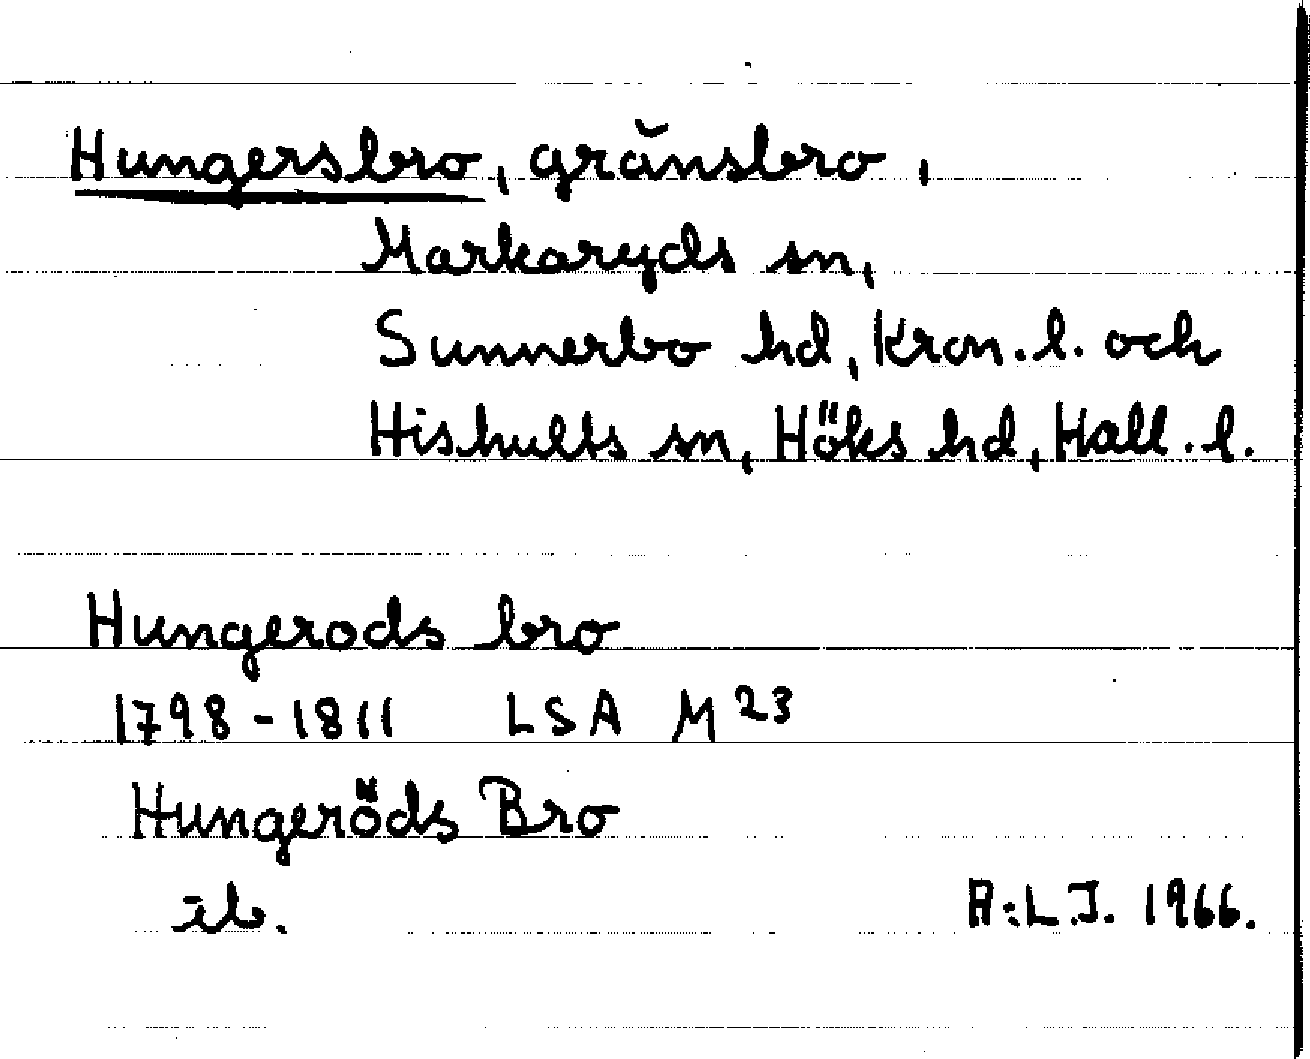 Hungersbro, gränsbro,
Markaryds sn,
Sunnerbo hd, Kron.l. och
Hishults sn, Höks hd, Hall.l.
Hungerods bro
1798-1811 LSA M 23
Hungeröds Bro
ib.
A:L.J. 1966.